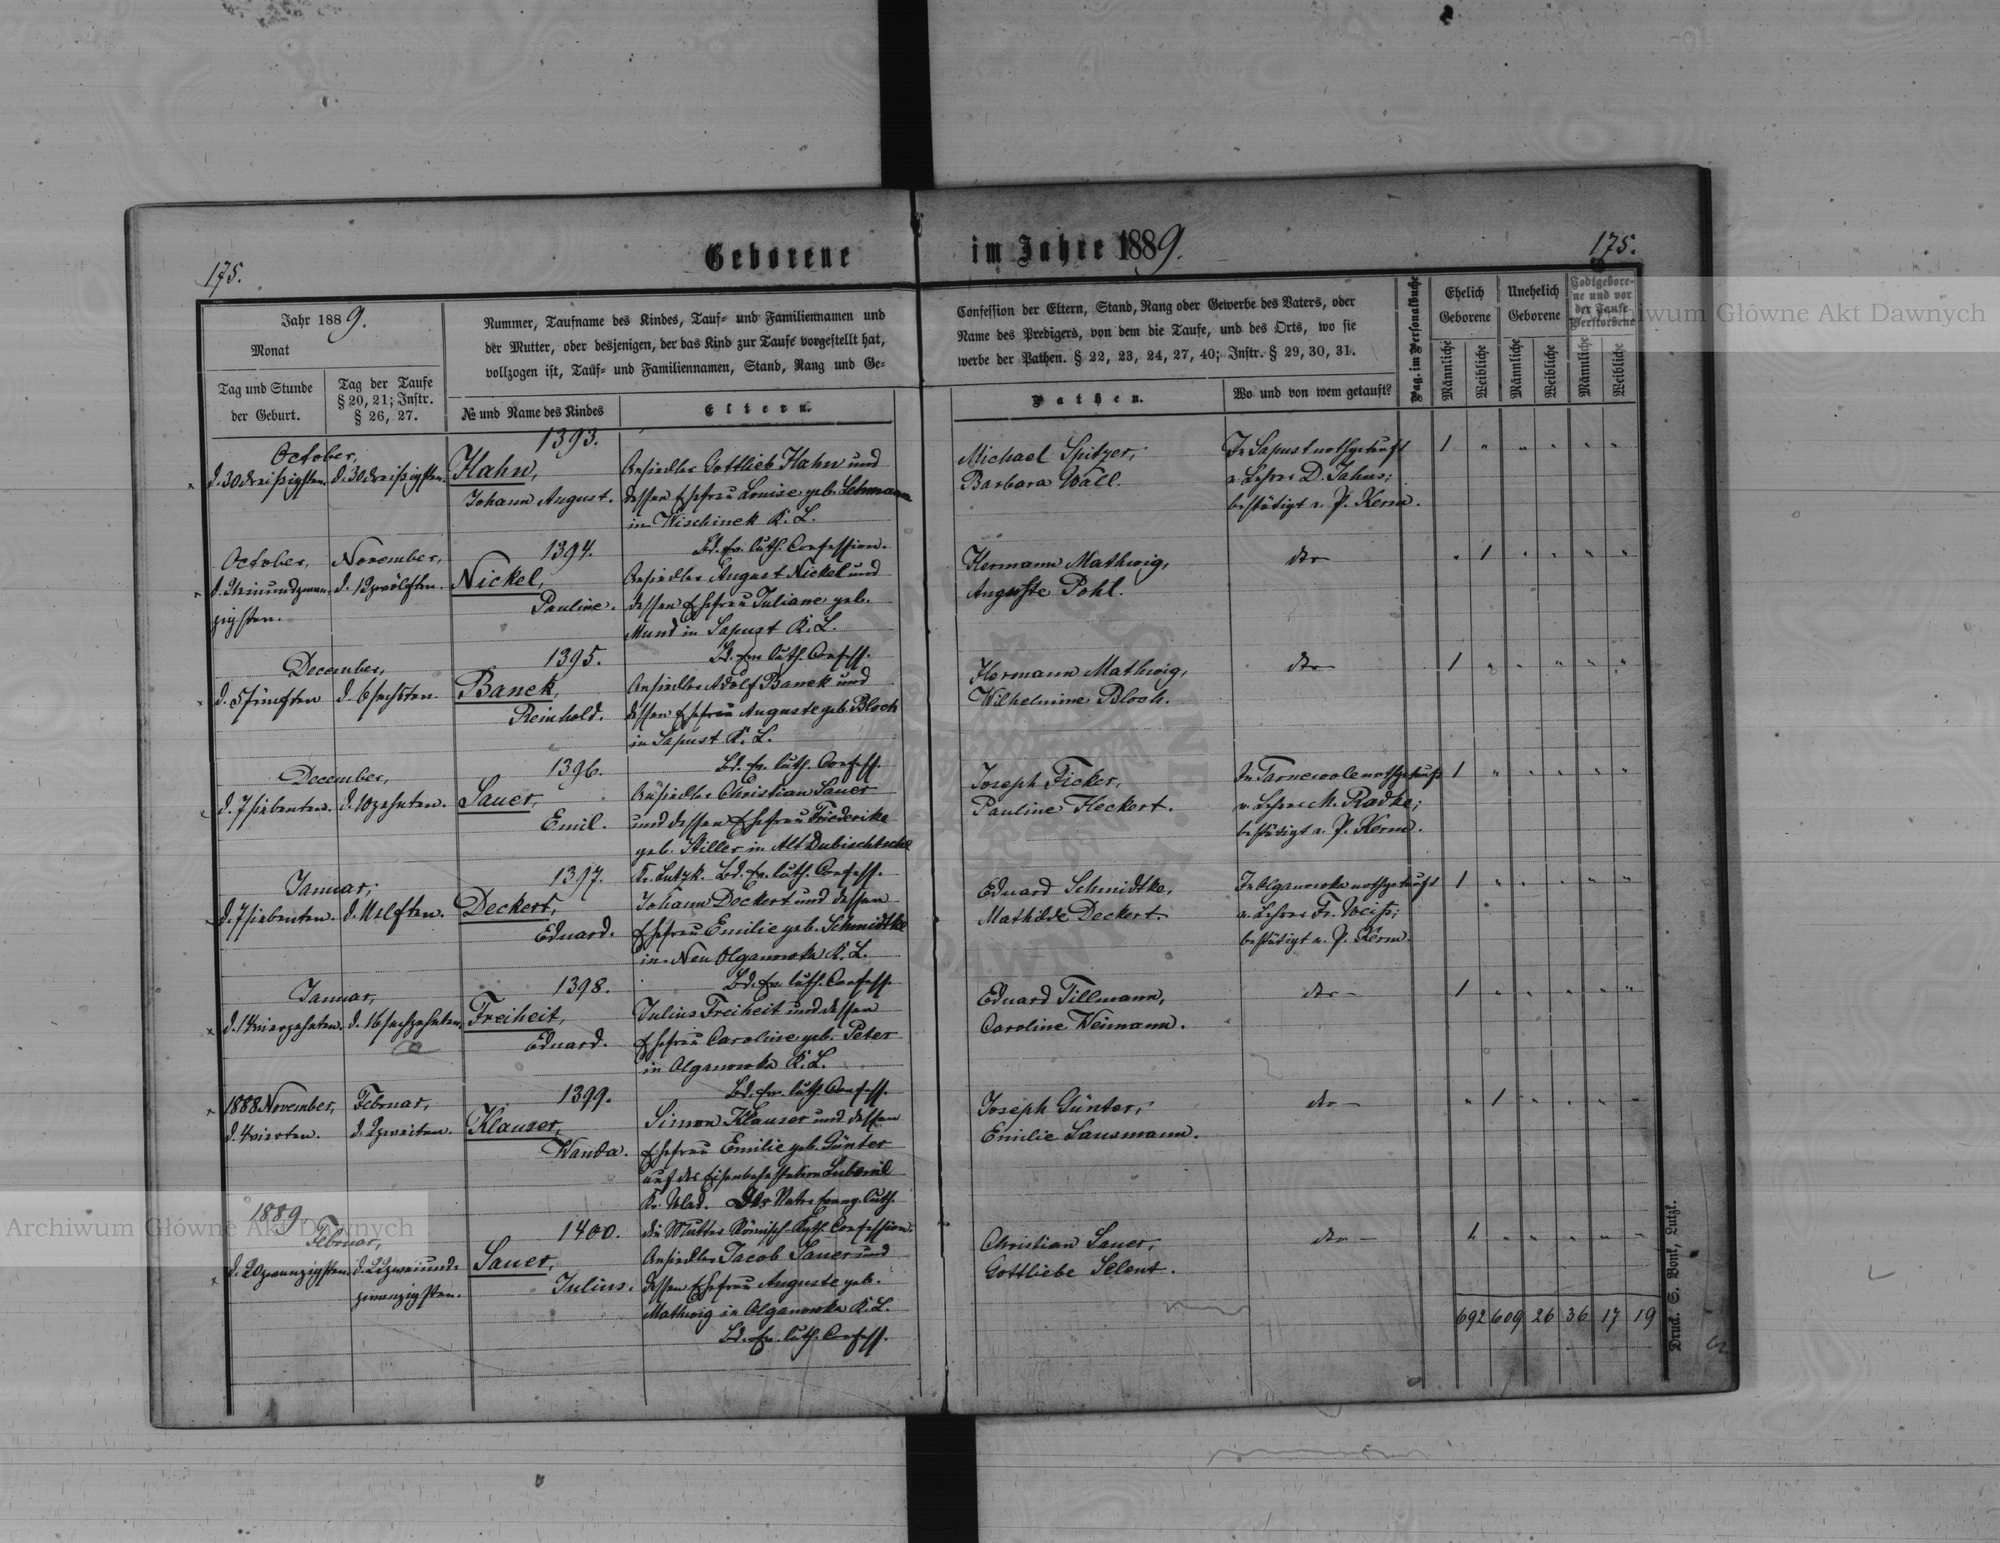 Geborene im Jahre 1889.
175.
175.
Jahr 1889.
Monat
Tag und Stunde
der Geburt.
Tag der Taufe
§ 20, 21; Instr.
§ 26, 27.
Nummer, Taufname des Kindes, Tauf- und Familiennamen und
der Mutter, oder desjenigen, der das Kind zur Taufe vorgestellt hat,
vollzogen ist, Tauf- und Familiennamen, Stand, Rang und Ge-
№ und Name des Kindes
Eltern.
Confession der Eltern, Stand, Rang oder Gewerbe des Vaters, oder
Name des Predigers, von dem die Taufe, und des Orts, wo sie
werbe der Pathen. § 22, 23, 24, 27, 40; Instr. § 29, 30, 31.
Pathen.
Wo und von wem getauft?
Pag. im Personalbuche
Ehelich
Geborene
Unehelich
Geborene
Todtgebore-
ne und vor
der Taufe
Verstorbene
Männliche
Weibliche
Männliche
Weibliche
Männliche
Weibliche
October,
d. 30 dreißigsten. d. 30 dreißigsten.
1393.
Hahn,
Johann August.
Ansiedler Gottlieb Hahn und
dessen Ehefrau Louise geb. Lehmann
in Wischinek K. L.
Bd. ev. luth. Confession.
Michael Spitzer,
Barbara Wall.
In Sapust nothgetauft
v. Lehrer D. Jahns;
bestätigt v. P. Kern.
1 " " " " "
October, November,
d. 21 einundzwan- d. 12 zwölften.
zigsten.
1394.
Nickel,
Pauline.
Ansiedler August Nickel und
dessen Ehefrau Juliane geb.
Mund in Sapust K. L.
Bd. ev. luth. Confess.
Hermann Mathwig,
Auguste Pohl.
dto
" 1 " " " "
December,
d. 5 fünften d. 6 sechsten.
1395.
Banek,
Reinhold.
Ansiedler Adolf Banek und
dessen Ehefrau Auguste geb. Bloch
in Sapust K. L.
Bd. ev. luth. Confess.
Hermann Mathwig,
Wilhelmine Bloch.
dto
1 " " " " "
December,
d. 7 siebenten. d. 10 zehnten.
1396.
Sauer,
Emil.
Ansiedler Christian Sauer
und dessen Ehefrau Friederike
geb. Stiller in Alt Dubischtsche
Kr. Lutzk. Bd. ev. luth. Confess.
Joseph Ficker,
Pauline Heckert.
In Tarnewole nothgetauft
v. Lehrer M. Radke;
bestätigt v. P. Kern.
1 " " " " "
Januar,
d. 7 siebenten. d. 11 elften.
1397.
Deckert,
Eduard.
Johann Deckert und dessen
Ehefrau Emilie geb. Schmidtke
in Neu Olganowka K. L.
Bd. ev. luth. Confess.
Eduard Schmidtke,
Mathilde Deckert.
In Olganowka nothgetauft
v. Lehrer Fr. Weiß;
bestätigt v. P. Kern.
1 " " " " "
Januar,
d. 14 vierzehnten. d. 16 sechzehnten.
1398.
Freiheit,
Eduard.
Julius Freiheit und dessen
Ehefrau Caroline geb. Peter
in Olganowka K. L.
Bd. ev. luth. Confess.
Eduard Tillmann,
Caroline Weimann.
dto
1 " " " " "
1888 November, Februar,
d. 4 vierten. d. 2 zweiten.
1399.
Klauser,
Wanda.
Simon Klauser und dessen
Ehefrau Emilie geb. Günter
auf der Eisenbahnstation Luboml
Kr. Wlad. Der Vater Evang. Luth.
die Mutter Römisch-Kath. Confession.
Joseph Günter,
Emilie Sausmann.
dto
" 1 " " " "
1889
Februar,
d. 20 zwanzigsten. d. 22 zweiund-
zwanzigsten.
1400.
Sauer,
Julius.
Ansiedler Jacob Sauer und
dessen Ehefrau Auguste geb.
Mathwig in Olganowka K. L.
Bd. ev. luth. Confess.
Christian Sauer,
Gottliebe Selent.
dto
1 " " " " "
692 609 26 36 17 19
Druck. S. Bont, Lutzk.
Archiwum Główne Akt Dawnych
Archiwum Główne Akt Dawnych